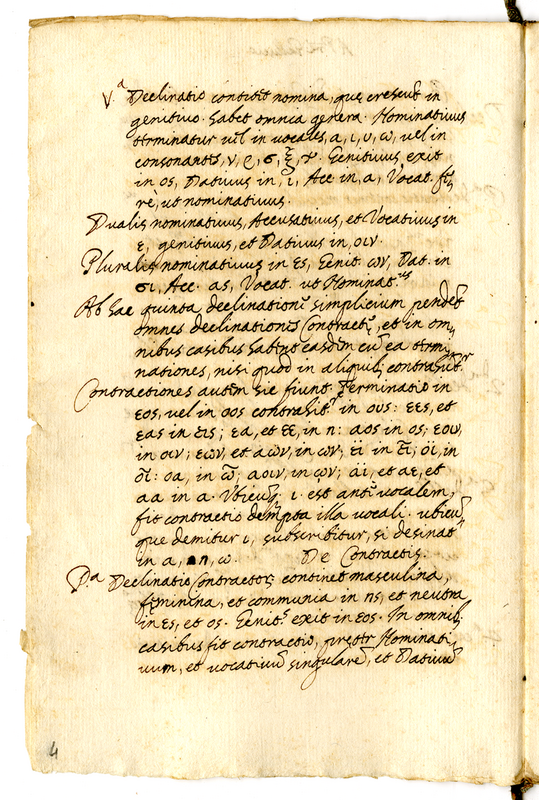 V.ª Declinatio continet nomina, quę crescūt in
genitiuo. habet omnia genera. Nominatiuus
terminatur uel in uocales, α, ι, υ, ω, uel in
consonantes, ν, ρ, σ, ξ, ψ. Genitiuus exit
in ος, Datiuus in, ι, Acc. in, α, Vocat. ferè
rè, ut nominatiuus.
Dualis nominatiuus, Accusatiuus, et Vocatiuus in
ε, genitiuus, et Datiuus in, οιν.
Pluralis nominatiuus in ες, Genit. ων, Dat. in
σι, Acc. ας, Vocat. ut Nominat.us
Ab hac quinta declinatione simplicium pendēt
omnes declinationes Contractę, et in om¬
nibus casibus habent easdem cū ea termi¬
nationes, nisi quod in aliquib; contrahūtur.
Contractiones autem sic fiunt. Terminatio in
εος, uel in οος contrahit.r in ους: εες, et
εας in εις; εα, et εε, in η: αος in ως; εοιν,
in οιν; εων, et αων, in ων; εϊ in ει; οϊ, in
οι: οα, in ω; αοιν, in ων; αι, et αε, et
αα in α. Vbicuq; ι. est ante uocalem,
fit contractio dempta illa uocali. ubicu¬
que demitur ι, subscribitur, si desinat
in α, η, ω. De Contractis.
P.a Declinatio Contractor. continet masculina,
fęminina, et communia in ης, et neutra
in ες, et ος. Genit.s exit in εος. In omnib;
casibus fit contractio, pręter Nominati¬
uum, et uocatiuū singularē, et Datiuū
4